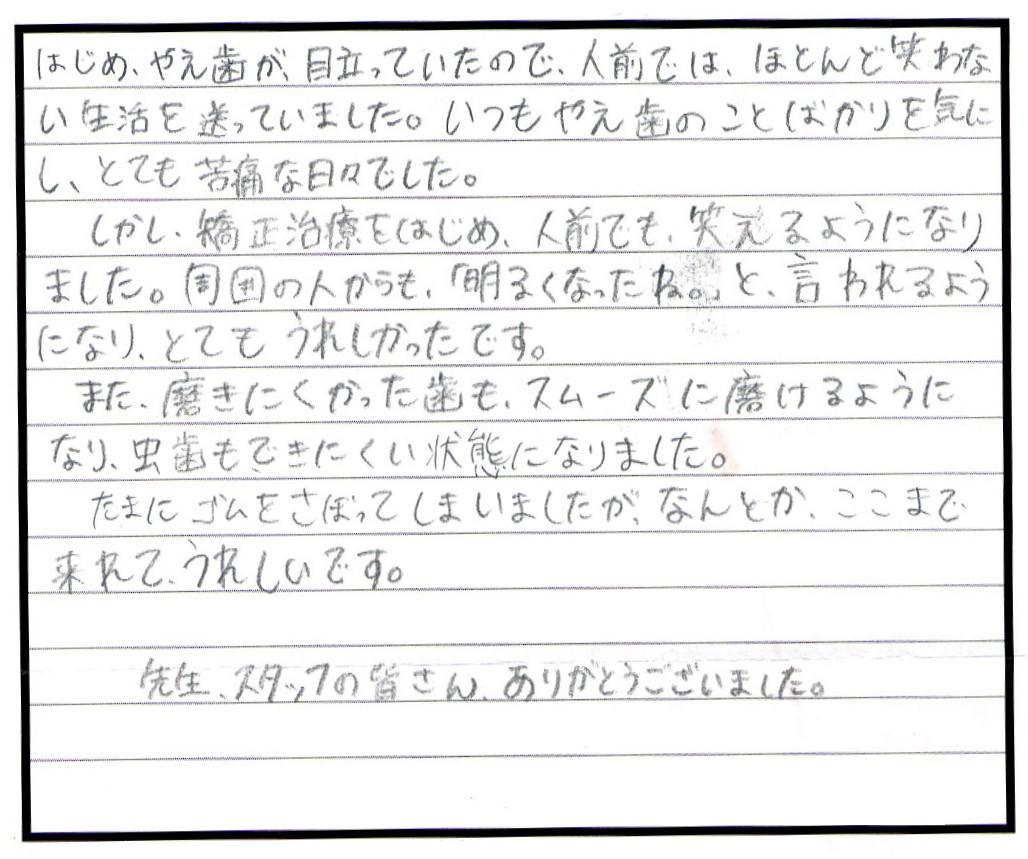 はじめ、やえ歯が、目立っていたので、人前では、ほとんど笑わな
い生活を送っていました。いつもやえ歯のことばかりを気に
し、とても苦痛な日々でした。
しかし、矯正治療をはじめ、人前でも、笑えるようになり
ました。周囲の人からも、「明るくなったね。」と、言われるよう
になり、とてもうれしかったです。
また、磨きにくかった歯も、スムーズに磨けるように
なり、虫歯もできにくい状態になりました。
たまにゴムをさぼってしまいましたが、なんとか、ここまで
来れて、うれしいです。
先生、スタッフの皆さん、ありがとうございました。